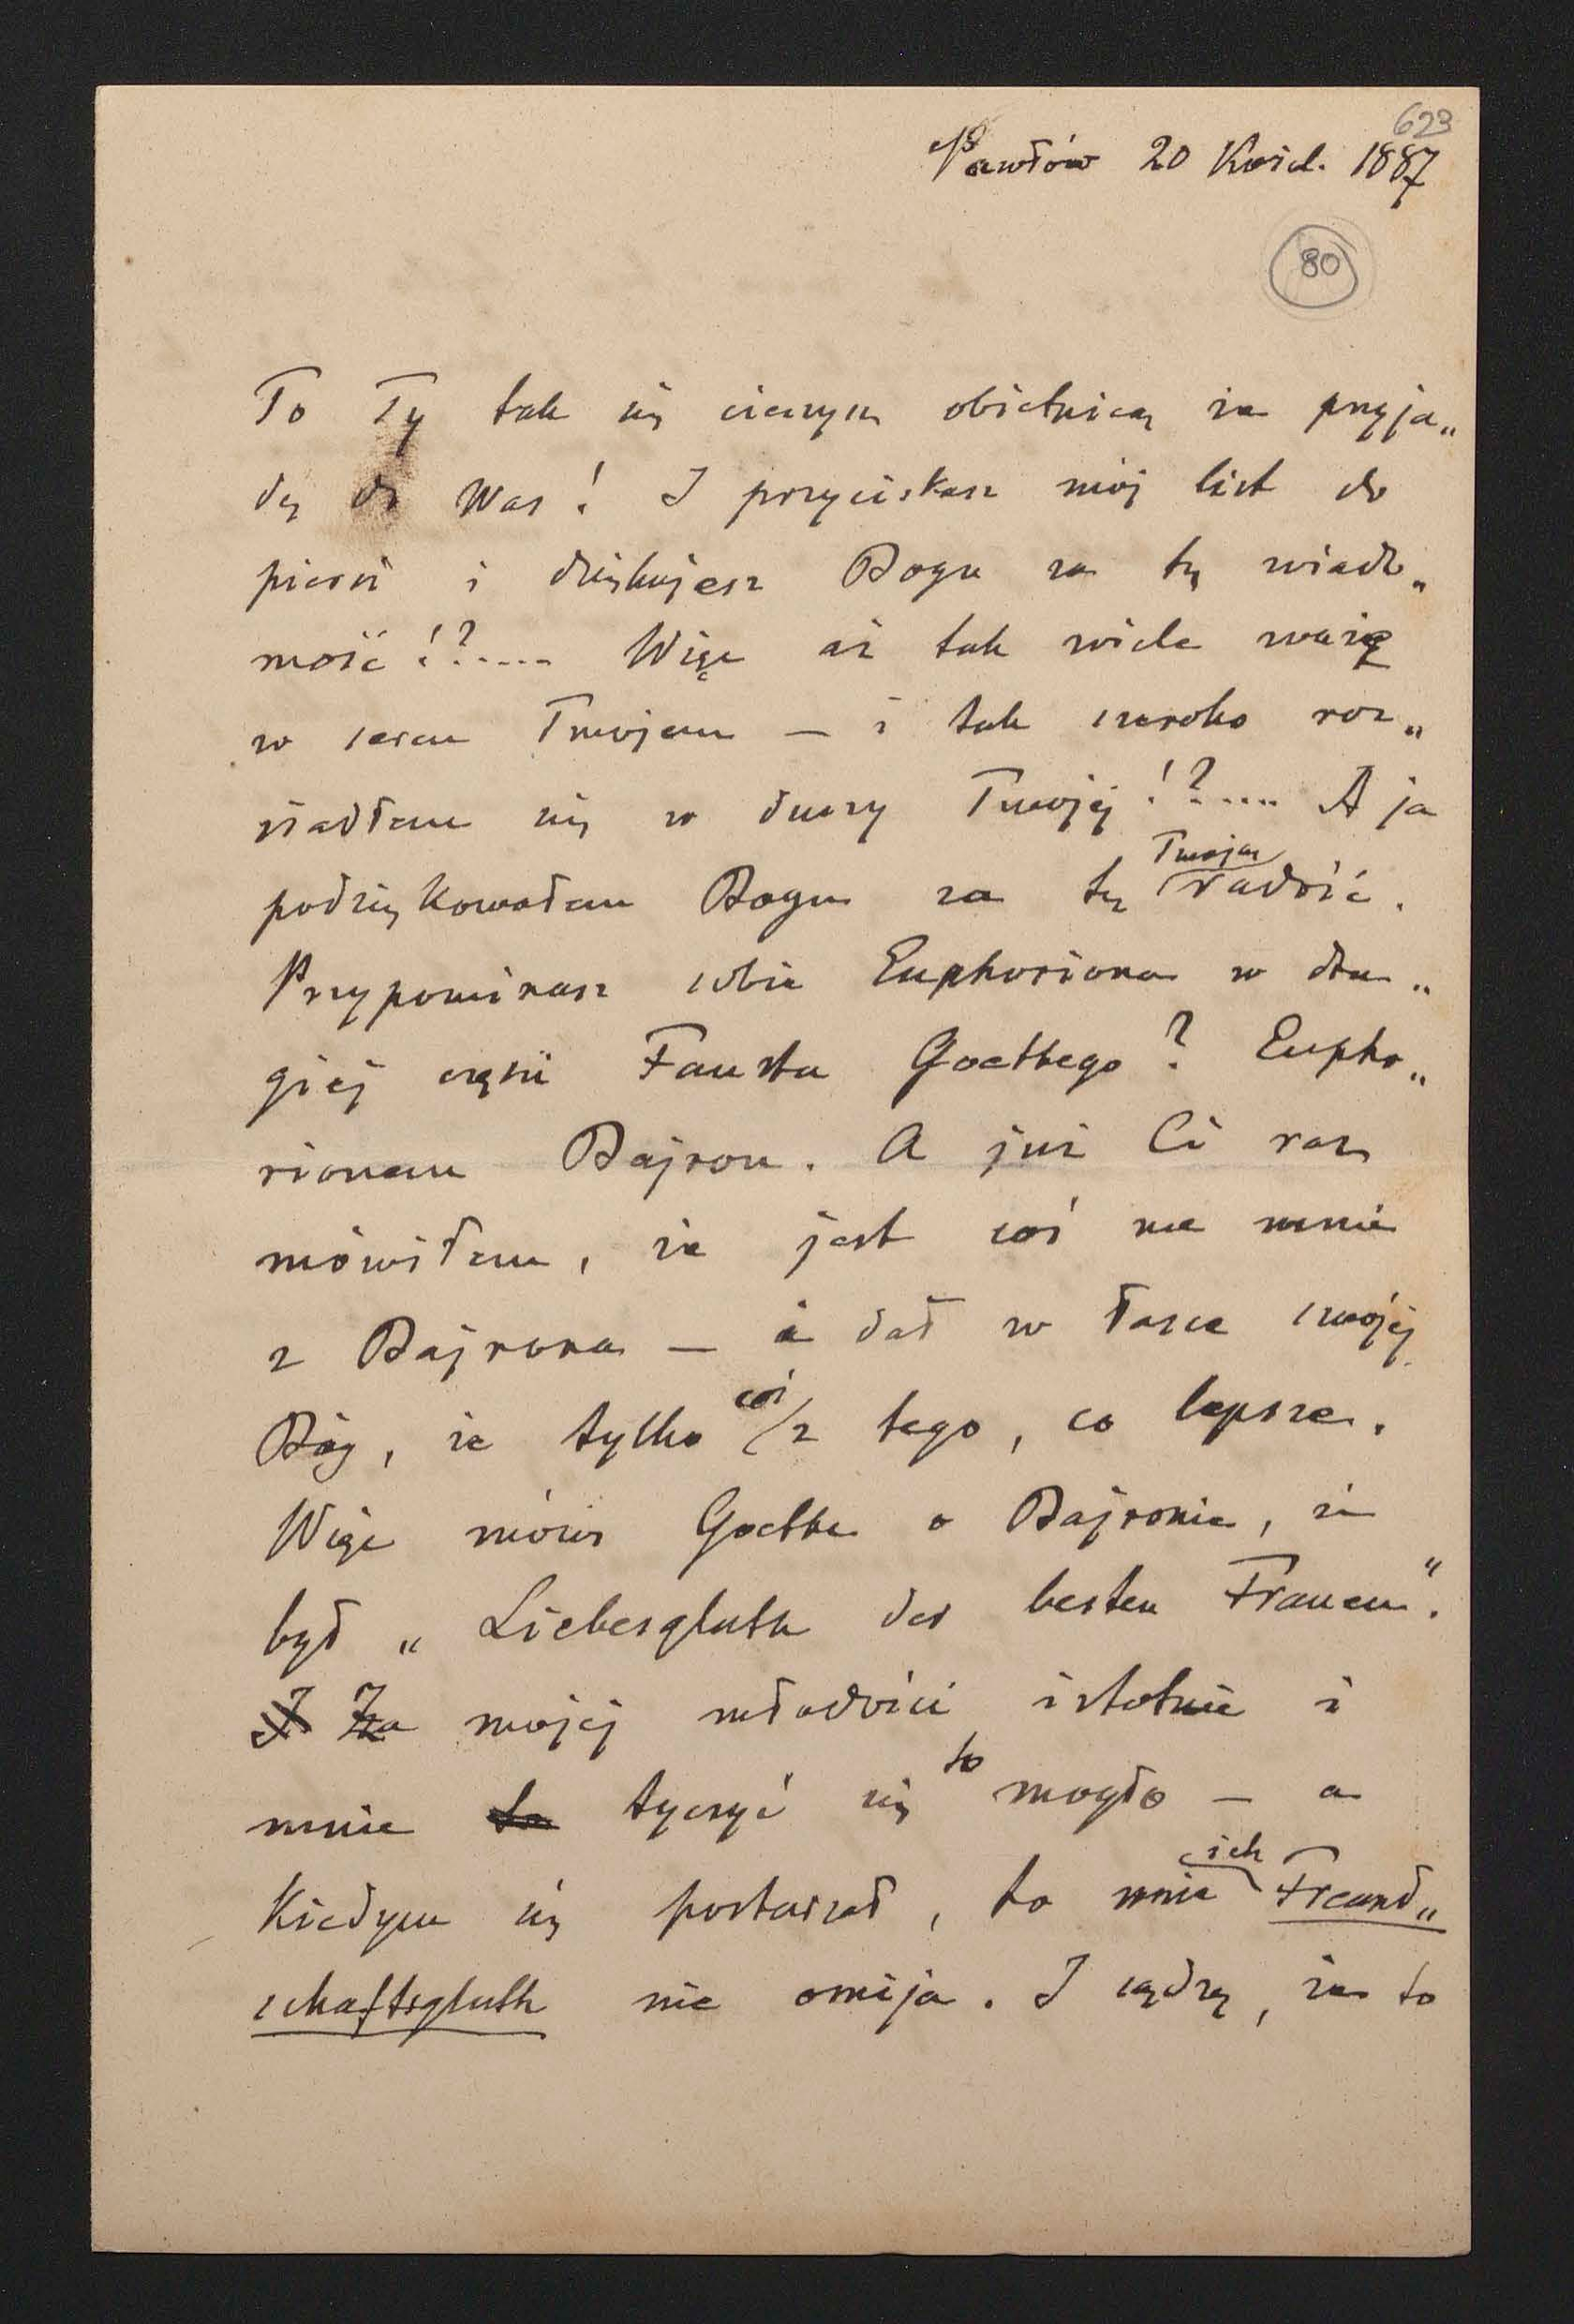 623
Pawłów 20 Kwiet. 1887
80
To Ty tak się cieszysz obietnicą że przyja„
dę do Was! I przyciskasz mój list do
piersi i dziękujesz Bogu za tę wiado„
mość!?..... Więc aż tak wiele ważę
w sercu Twojem — i tak szeroko roz„
siadłem się w duszy Twojej!?.... A ja
podziękowałem Bogu za tę Twoją radość.
Przypominasz sobie Euphoriona w dru„
giej części Fausta Goethego? Eupho„
rionem Bajron. A już Ci raz
mówiłem, że jest coś we mnie
z Bajrona — a dał w łasce swojej
Bóg, że tylko coś z tego, co lepsze.
Więc mówi Goethe o Bajronie, że
był „Liebesgluth der besten Frauen".
Za mojej młodości istotnie i
mnie tyczyć się to mogło — a
kiedym się postarzał, to mnie ich Freund„
schaftsgluth nie omija. I sądzę, że to